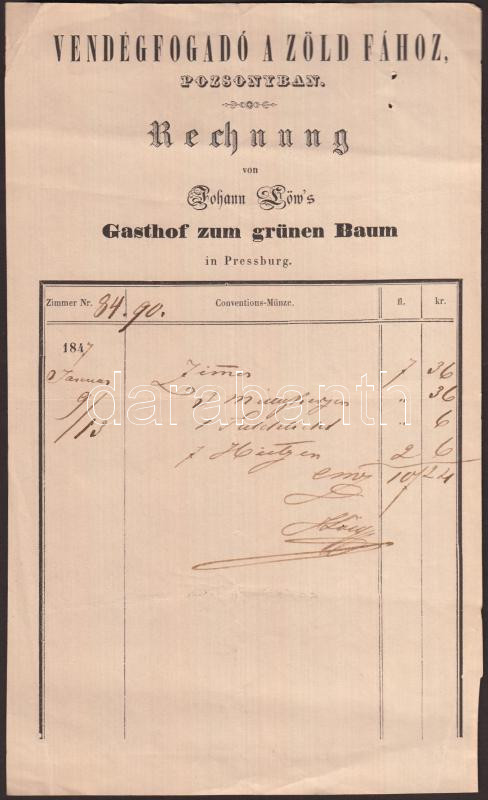 VENDÉGFOGADÓ A ZÖLD FÁHOZ,
POZSONYBAN.
Rechnung
von
Johann Löw's
Gasthof zum grünen Baum
in Pressburg.
Zimmer Nr. 84. 90. Conventions-Münze. fl. kr.
1847
Januar 7 Zimer 7 36
9/ 7 " 36
/13 7 " 6
7 Heitzen 2 6
cmz 10 24
darabanth